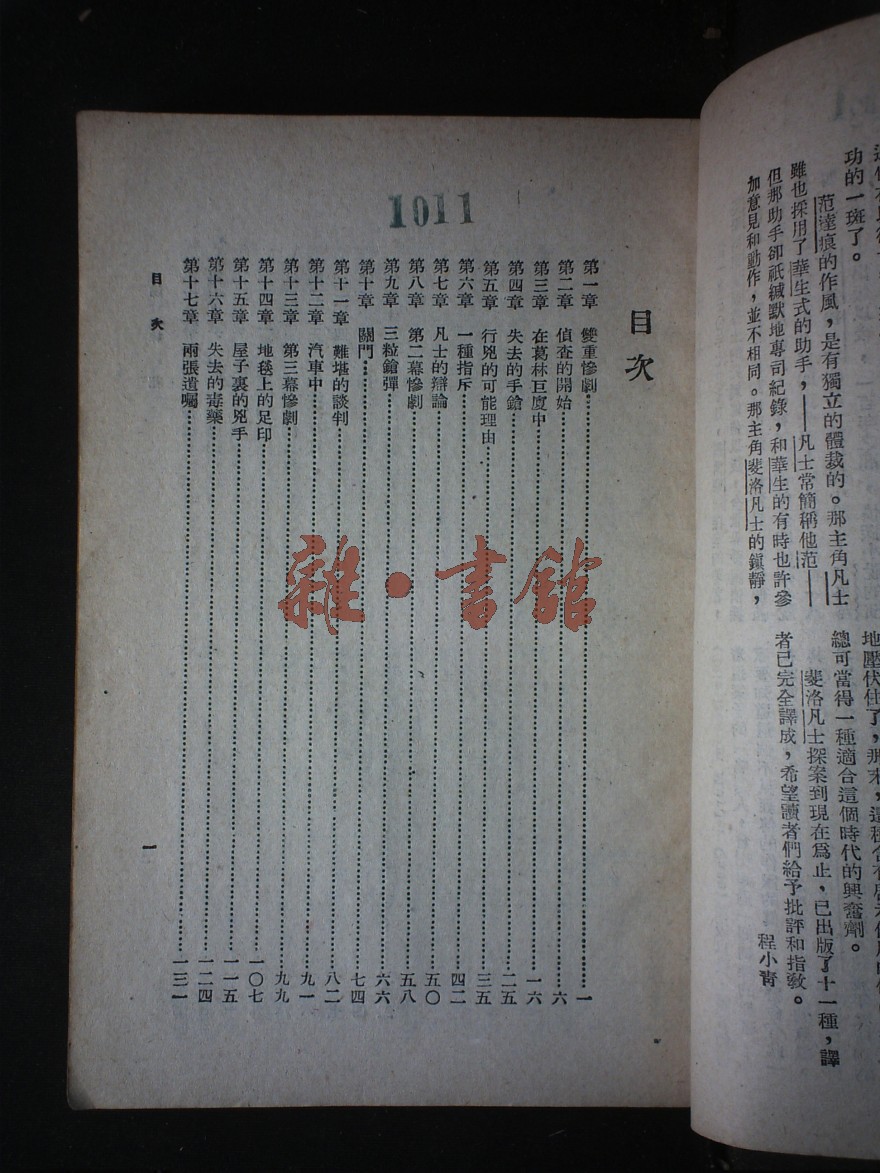 功的一斑了。
范達痕的作風，是有獨立的體裁的。那主角凡士
雖也採用了華生式的助手，——凡士常簡稱他范——
但那助手卻祇緘默地專司紀錄，和華生的有時也許參
加意見和動作，並不相同。那主角斐洛凡士的鎮靜，
地壓伏住了，那末，這種含有
總可當得一種適合這個時代的興奮劑。
斐洛凡士探案到現在為止，已出版了十一種，譯
者已完全譯成，希望讀者們給予批評和指教。
程小青
1011
目次
第一章 雙重慘劇 一
第二章 偵查的開始 六
第三章 在葛林巨廈中 一六
第四章 失去的手鎗 二五
第五章 行兇的可能理由 三五
第六章 一種指斥 四二
第七章 凡士的辯論 五〇
第八章 第二幕慘劇 五八
第九章 三粒鎗彈 六六
第十章 關門 七四
第十一章 難堪的談判 八二
第十二章 汽車中 九一
第十三章 第三幕慘劇 九九
第十四章 地毯上的足印 一〇七
第十五章 屋子裏的兇手 一一五
第十六章 失去的毒藥 一二四
第十七章 兩張遺囑 一三一
目次
一
雜·書館